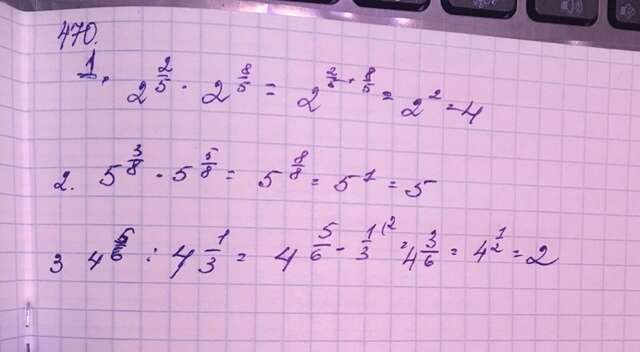 470.
1. 2^(2/5) · 2^(8/5) = 2^(2/5 + 8/5) = 2^2 = 4
2. 5^(3/8) · 5^(5/8) = 5^(8/8) = 5^1 = 5
3 4^(5/6) : 4^(1/3) = 4^(5/6 - 1/3 (2) = 4^(3/6) = 4^(1/2) = 2